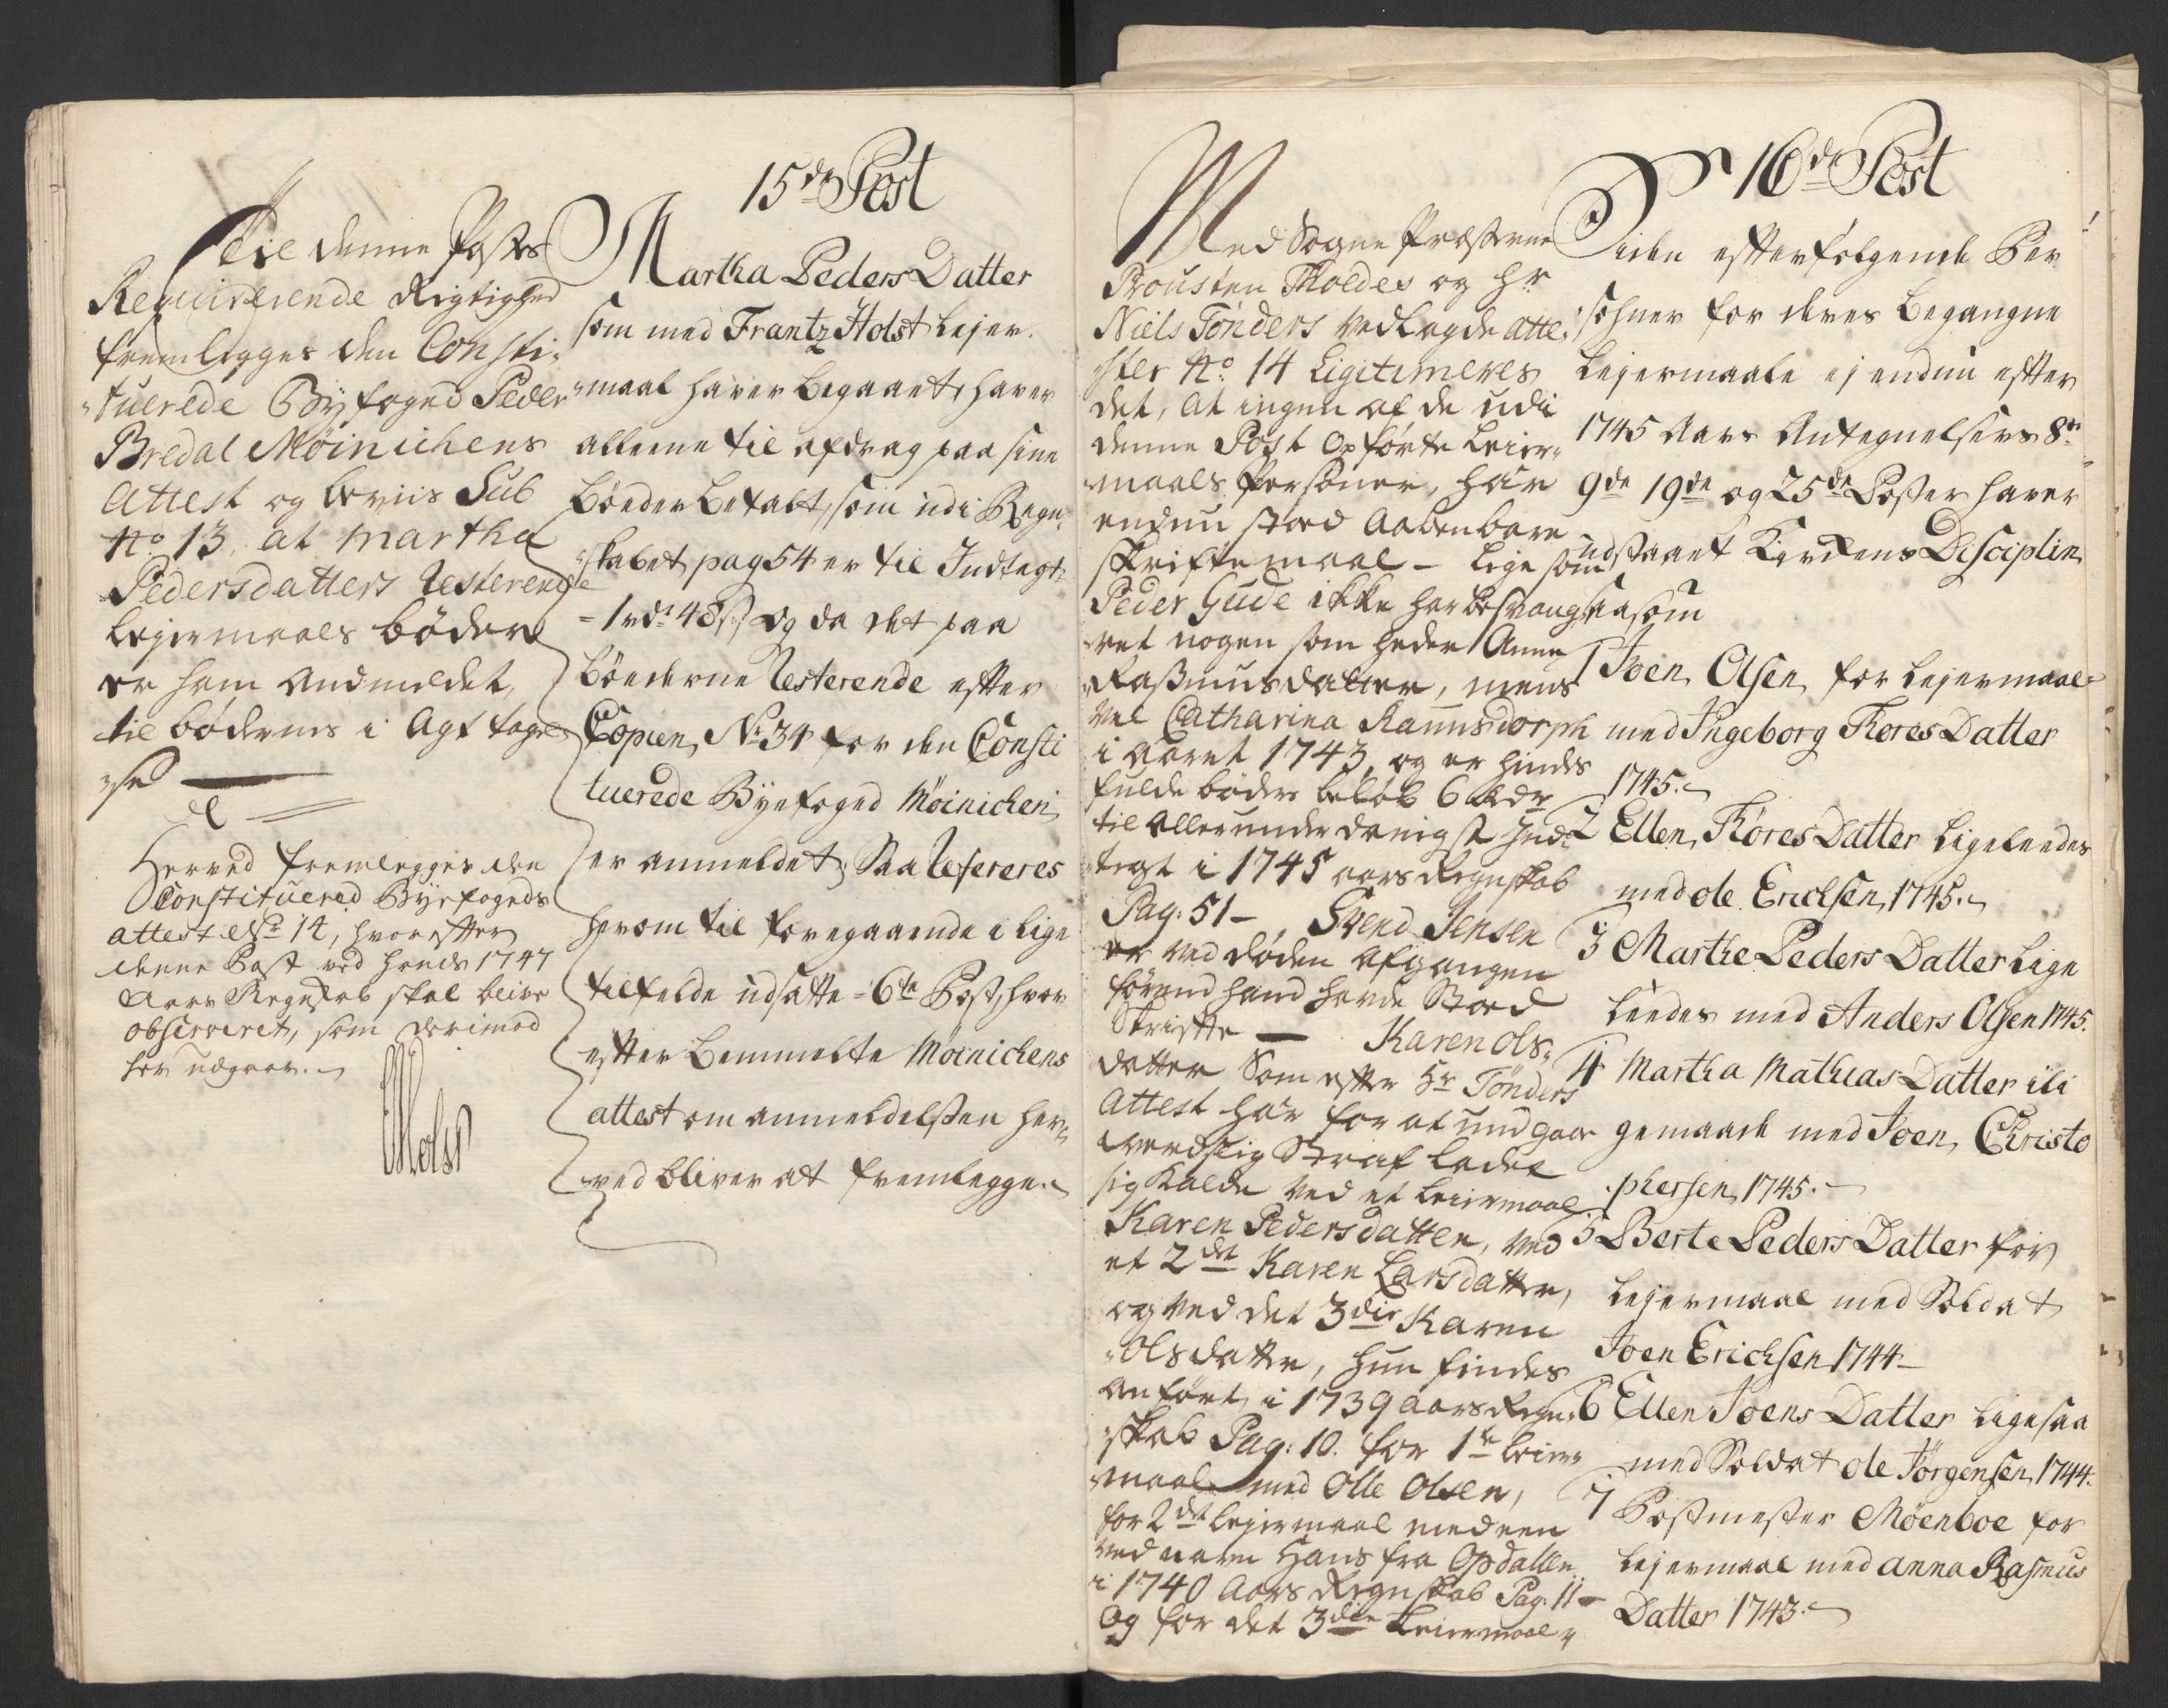 15de Post
Til denne Posts
Requirerende Rigtighed
fremlegges den Consti-
tuerede Byfoged Peder
Bredal Möinichens
Attest og beviis Sub
No 13, at Martha
Pedersdatters resterende
Leyermaals bøder
er ham Anmeldet,
til bødernes i Agt tagel-
se
Herved fremlegges den
Constituered Byefogeds
attest No 14, hvorefter
denne Post ved hends 1747
Aars Regnskab skal blive
observeret, som derimod
her udgaar.
Martha Peders Datter
som med Frantz Holst Lejer-
maal haver begaaet, haver
alleene til afdrag paa sine
bøder betalt, som udi Regn-
skabet pag 54 er til Indtægt
1 rdr 48 s, og da det paa
bøderne resterende efter
Copien No 34 for den Consti
tuerede Byefoged Möinichen
er anmeldet; Saa refereres
herom til foregaaende i lige
tilfelde udsatte 6te Post, hvor
efter bemmelte Möinichens
attest om anmeldelsen her-
ved bliver at fremlegge.
16de Post
Med Sogne Præsterne
Prousten Tholdes og Hr
Niels Tönders vedlagde atte-
ster No 14 Ligitimeres
det, at ingen af de udi
denne Post Opførte Leier-
maals Personer, har
endnu staaed Aabenbare
skriftemaal - lige som
Peder Gude ikke har besvang-
ret nogen som heder Anna
Rasmusdatter, mens
vel Catharina Raunsdorph
i Aaret 1743, og er hindes
fulde bøder beløb 6 Rdr
til Allerunderdanigst Ind-
tegt i 1745 aars Regnskab
Pag: 51 - Svend Jensen
er ved døden Afgangen
førend hand havde Staaed
Skrifte - Karen Ols-
datter Som efter Hr Tönders
Attest har for at undgaae
verdslig Straf ladet
sig kalde ved et Leiermaal
Karen Pedersdatter, ved
et 2det Karen Larsdatter,
og ved det 3die Karen
Olsdatter, hun findes
anført i 1739 aars Regn-
skab Pag: 10. for 1te Leier-
maal med Olle Olsen,
for 2det Lejermaal med een
ved navn Hans fra Opdallen
i 1740 Aars Regnskab Pag: 11
Og for det 3die Leiermaal
Siden efterfølgende Per
sohner for deres begangne
Lejermaale ej endnu efter
1745 Aars Antegnelsers 8de
9de 19de og 25de Poster haver
udstaaet Kirkens Disciplin,
saasom
1 Joen Olsen for Lejermaal
med Ingeborg Thores Datter
1745.
2 Ellen Thores Datter Ligeleedes
med ole Erichsen 1745.
3 Marthe Peders Datter Lige
leedes med Anders Olsen 1745.
4 Martha Mathias Datter ili
gemaade med Joen Christo
phersen 1745.
5 Berte Peders Datter for
Lejermaal med Soldat
Joen Erichsen 1744
6 Ellen Joens Datter Ligesaa
med Soldat ole Jörgensen 1744.
7 Postmester Möenboe for
Lejermaal med Anna Rasmus
Datter 1743.